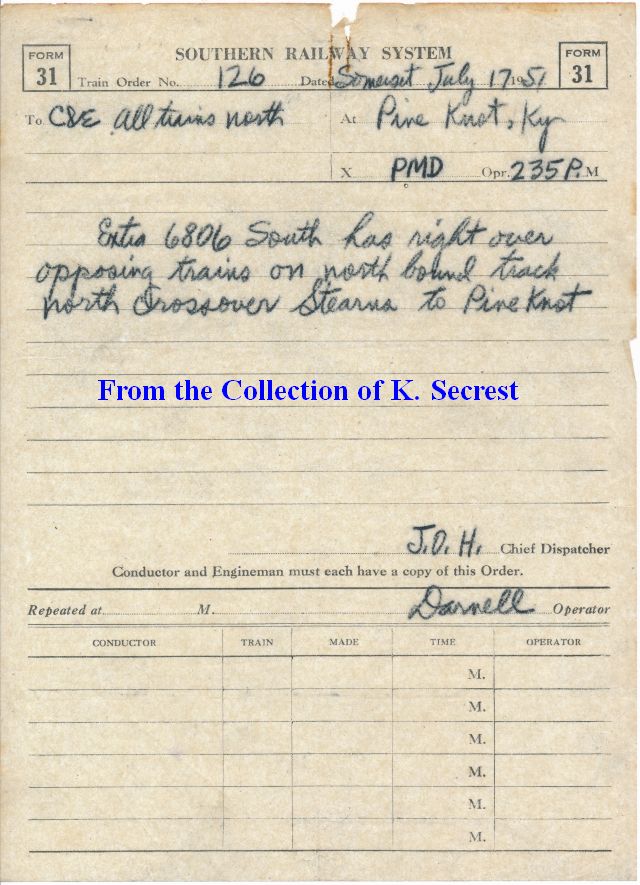 SOUTHERN RAILWAY SYSTEM
FORM 31
FORM 31
Train Order No. 126 Dated Somerset July 17 1951
To C&E All trains north At Pine Knot, Ky
X PMD Opr. 235 P. M
Extra 6806 South has right over
opposing trains on north bound track
north Crossover Stearns to Pine Knot
From the Collection of K. Secrest
J.O.H. Chief Dispatcher
Conductor and Engineman must each have a copy of this Order.
Repeated at M. Darnell Operator
CONDUCTOR TRAIN MADE TIME OPERATOR
M.
M.
M.
M.
M.
M.